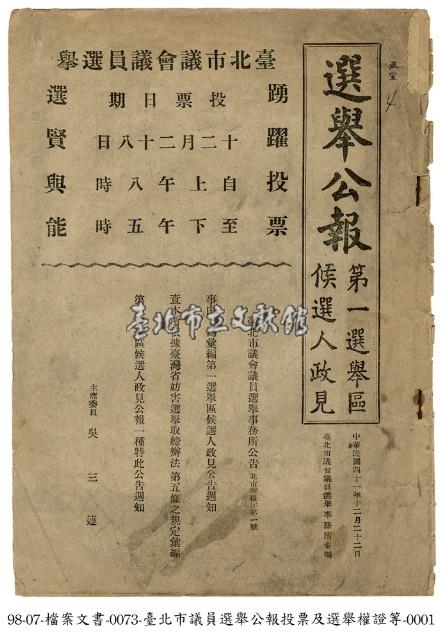 選舉公報
第一選舉區
候選人政見
中華民國四十一年十二月二十二日
臺北市議會議員選舉事務所彙編
臺北市議會議員選舉
投票日期
十二月二十八日
自上午八時
至下午五時
踴躍投票
選賢與能
臺北市議會議員選舉事務所公告
事由 彙編第一選舉區候選人政見公告週知
查本 據臺灣省妨害選舉取締辦法第五條之規定彙編
第 區候選人政見公報一種特此公告週知
主席委員 吳三連
臺北市立文獻館
4
98-07-檔案文書-0073-臺北市議員選舉公報投票及選舉權證等-0001